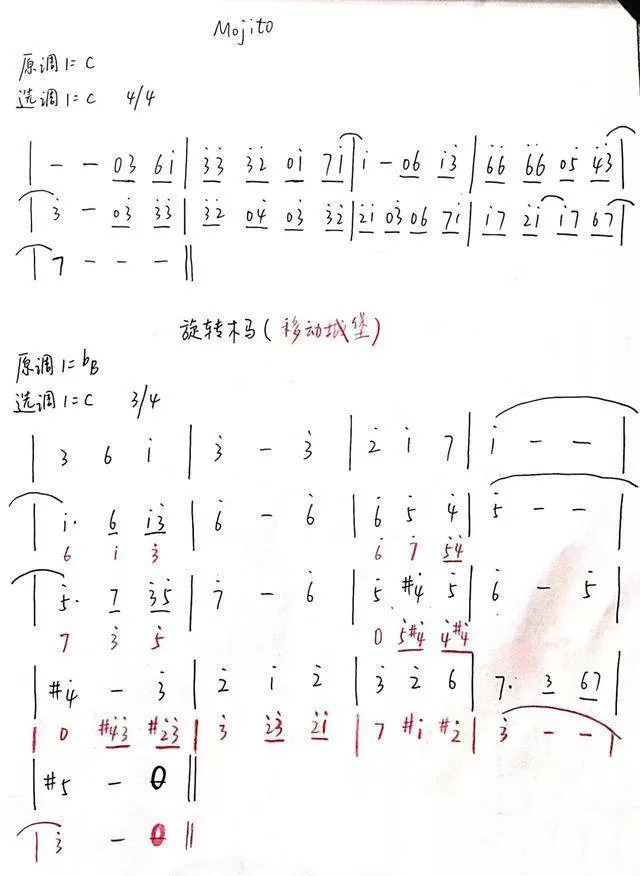 Mojito
原调 1= C
选调 1= C 4/4
| - - 03̇ 61̇ | 3̇3̇ 3̇2̇ 01̇ 71̇ | 1̇ - 06 1̇3̇ | 6̇6̇ 6̇6̇ 05̇ 4̇3̇ |
| 3̇ - 03̇ 3̇3̇ | 3̇2̇ 04̇ 03̇ 3̇2̇ | 2̇1̇ 03̇ 06 71̇ | 1̇7 2̇1̇ 1̇7 67 |
| 7 - - - ||
旋转木马(移动城堡)
原调 1= bB
选调 1= C 3/4
| 3 6 1̇ | 3̇ - 3̇ | 2̇ 1̇ 7 | 1̇ - - |
| 1̇· 6̇ 1̇3̇ | 6̇ - 6̇ | 6̇ 5̇ 4̇ | 5̇ - - |
6 1̇ 3̇ 6̇ 7̇ 5̇4̇
| 5̇· 7 3̇5̇ | 7̇ - 6̇ | 5̇ #4̇ 5̇ | 6̇ - 5̇ |
7 3̇ 5̇ 0 5̇#4̇ 4̇#4̇
| #4̇ - 3̇ | 2̇ 1̇ 2̇ | 3̇ 2̇ 6 | 7· 3 67 |
| 0 #4̇3̇ #2̇3̇ | 3̇ 2̇3̇ 2̇1̇ | 7 #1̇ #2̇ | 3̇ - - |
| #5 - 0 ||
| 3̇ - 0 ||